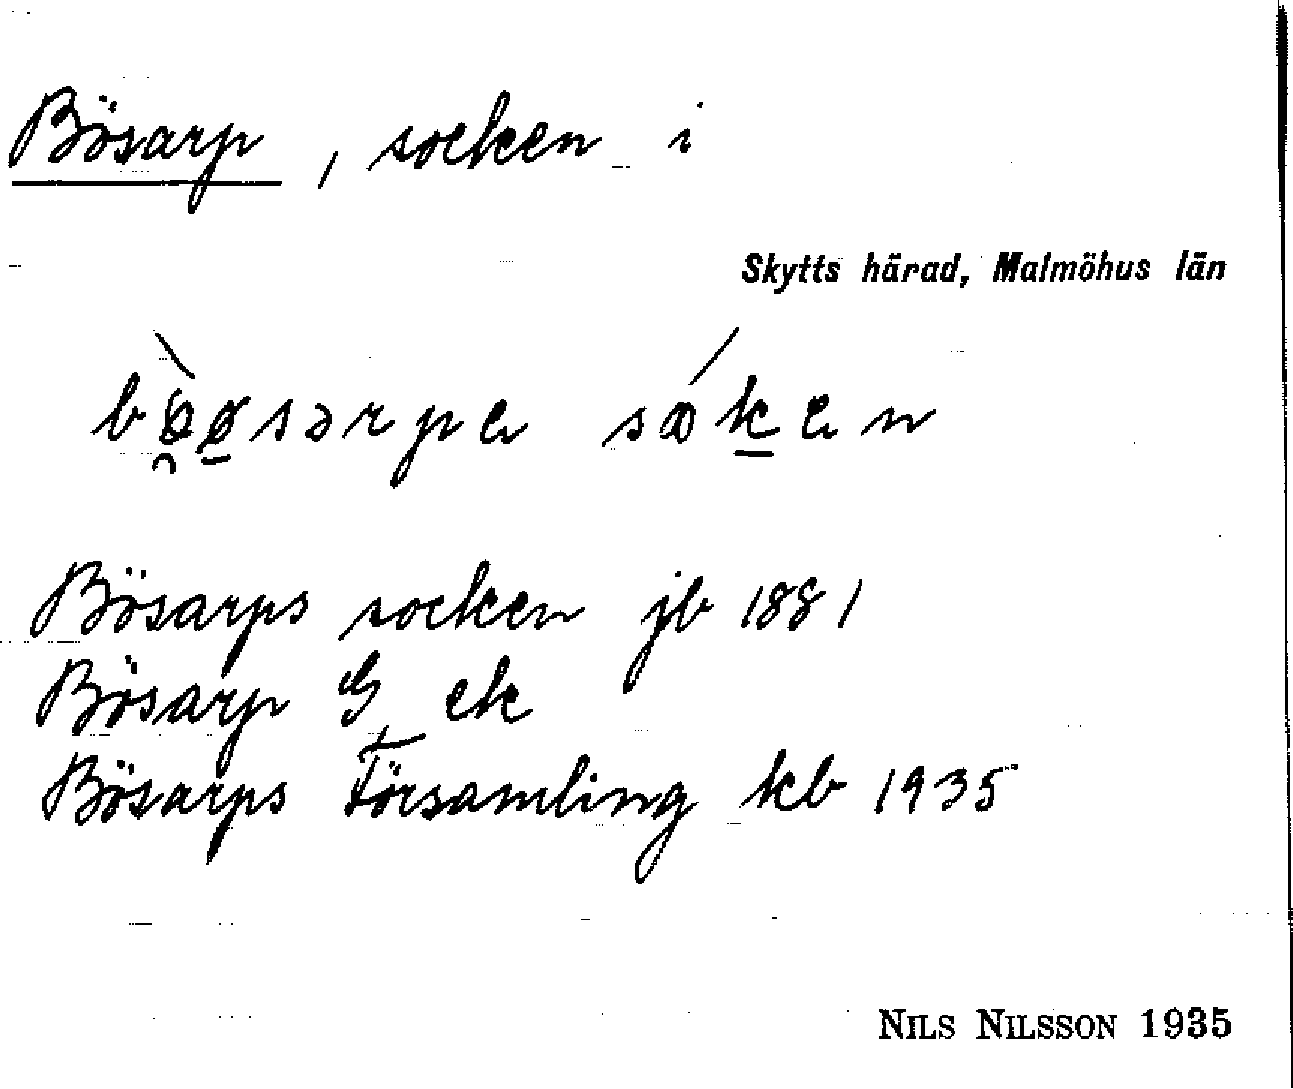 Bösarp, socken i
Skytts härad, Malmöhus län
Bösarps socken jb 1881
Bösarp G ek
Bösarps Församling kb 1935
NILS NILSSON 1935